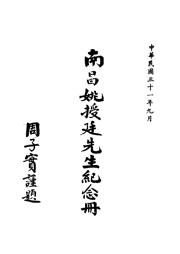 中華民國三十一年九月
南昌姚授廷先生紀念冊
周子實謹題